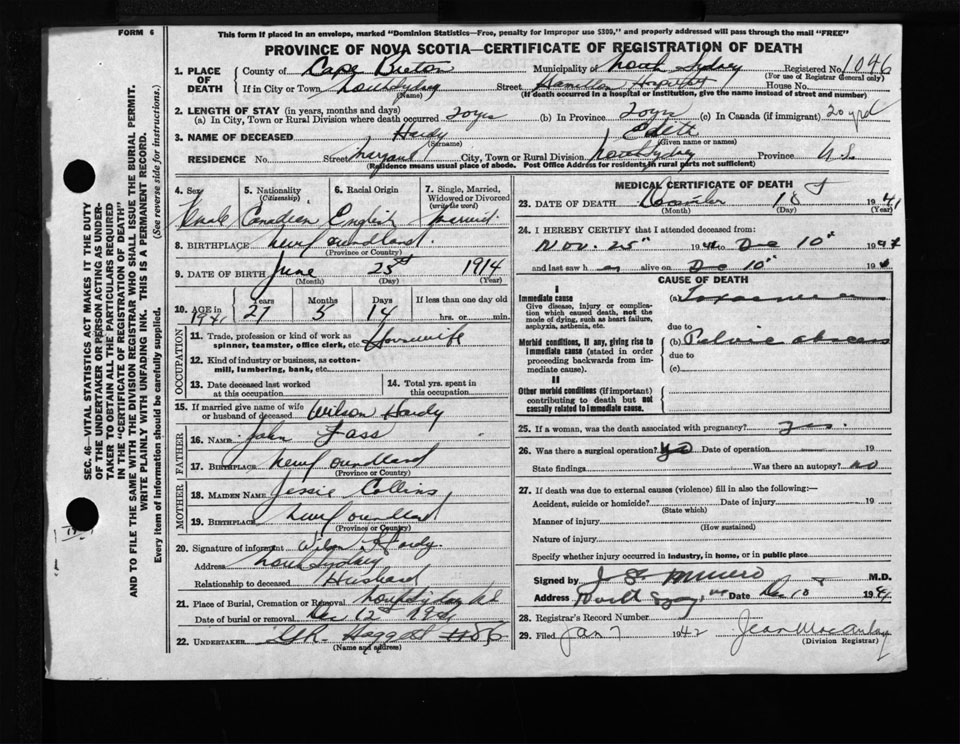 FORM 6
This form if placed in an envelope, marked "Dominion Statistics—Free, penalty for improper use $300," and properly addressed will pass through the mail "FREE"
PROVINCE OF NOVA SCOTIA—CERTIFICATE OF REGISTRATION OF DEATH
1. PLACE OF DEATH
County of Cape Breton Municipality of North Sydney Registered No. 1046
(For use of Registrar General only)
If in City or Town North Sydney (Name) Street Hamilton Hospital House No.
(If death occurred in a hospital or institution, give the name instead of street and number)
2. LENGTH OF STAY (in years, months and days)
(a) In City, Town or Rural Division where death occurred 20 yrs (b) In Province 20 yrs (c) In Canada (if immigrant) 20 yrs
3. NAME OF DECEASED Hardy (Surname) Edith (Given name or names)
RESIDENCE No. Street City, Town or Rural Division North Sydney Province N.S.
(Residence means usual place of abode. Post Office Address for residents in rural parts not sufficient)
4. Sex Female
5. Nationality (Citizenship) Canadian
6. Racial Origin English
7. Single, Married, Widowed or Divorced (write the word) Married
8. BIRTHPLACE Newfoundland (Province or Country)
9. DATE OF BIRTH June (Month) 25 (Day) 1914 (Year)
10. AGE in 1941 Years 27 Months 5 Days 14 If less than one day old hrs. or min.
OCCUPATION
11. Trade, profession or kind of work as spinner, teamster, office clerk, etc. Housewife
12. Kind of industry or business, as cotton-mill, lumbering, bank, etc.
13. Date deceased last worked at this occupation
14. Total yrs. spent in this occupation
15. If married give name of wife or husband of deceased Wilson Hardy
FATHER
16. NAME John
17. BIRTHPLACE Newfoundland (Province or Country)
MOTHER
18. MAIDEN NAME Jessie Collins
19. BIRTHPLACE Newfoundland (Province or Country)
20. Signature of informant Wilson Hardy
Address North Sydney
Relationship to deceased Husband
21. Place of Burial, Cremation or Removal North Sydney N.S.
Date of burial or removal Dec 12 1941
22. UNDERTAKER Haggett
(Name and address)
MEDICAL CERTIFICATE OF DEATH
23. DATE OF DEATH December (Month) 10 (Day) 1941 (Year)
24. I HEREBY CERTIFY that I attended deceased from:
Nov. 25 1941 to Dec 10 1941
and last saw h er alive on Dec 10 194
CAUSE OF DEATH
I
Immediate cause
Give disease, injury or complication which caused death, not the mode of dying, such as heart failure, asphyxia, asthenia, etc.
(a) Toxaemia
due to
Morbid conditions, if any, giving rise to immediate cause (stated in order proceeding backwards from immediate cause).
(b) Pelvic abscess
due to
(c)
II
Other morbid conditions (if important) contributing to death but not causally related to immediate cause.
25. If a woman, was the death associated with pregnancy? Yes.
26. Was there a surgical operation? Yes Date of operation 19
State findings Was there an autopsy? no
27. If death was due to external causes (violence) fill in also the following:—
Accident, suicide or homicide? (State which) Date of injury 19
Manner of injury (How sustained)
Nature of injury
Specify whether injury occurred in industry, in home, or in public place
Signed by Munro M.D.
Address North Sydney Date Dec 10 1941
28. Registrar's Record Number
29. Filed Jan 7 1942 Jean MacAulay
(Division Registrar)
SEC. 46—VITAL STATISTICS ACT MAKES IT THE DUTY
OF THE UNDERTAKER OR PERSON ACTING AS UNDER-
TAKER TO OBTAIN ALL THE PARTICULARS REQUIRED
IN THE "CERTIFICATE OF REGISTRATION OF DEATH"
AND TO FILE THE SAME WITH THE DIVISION REGISTRAR WHO SHALL ISSUE THE BURIAL PERMIT.
WRITE PLAINLY WITH UNFADING INK. THIS IS A PERMANENT RECORD.
Every item of information should be carefully supplied. (See reverse side for instructions.)